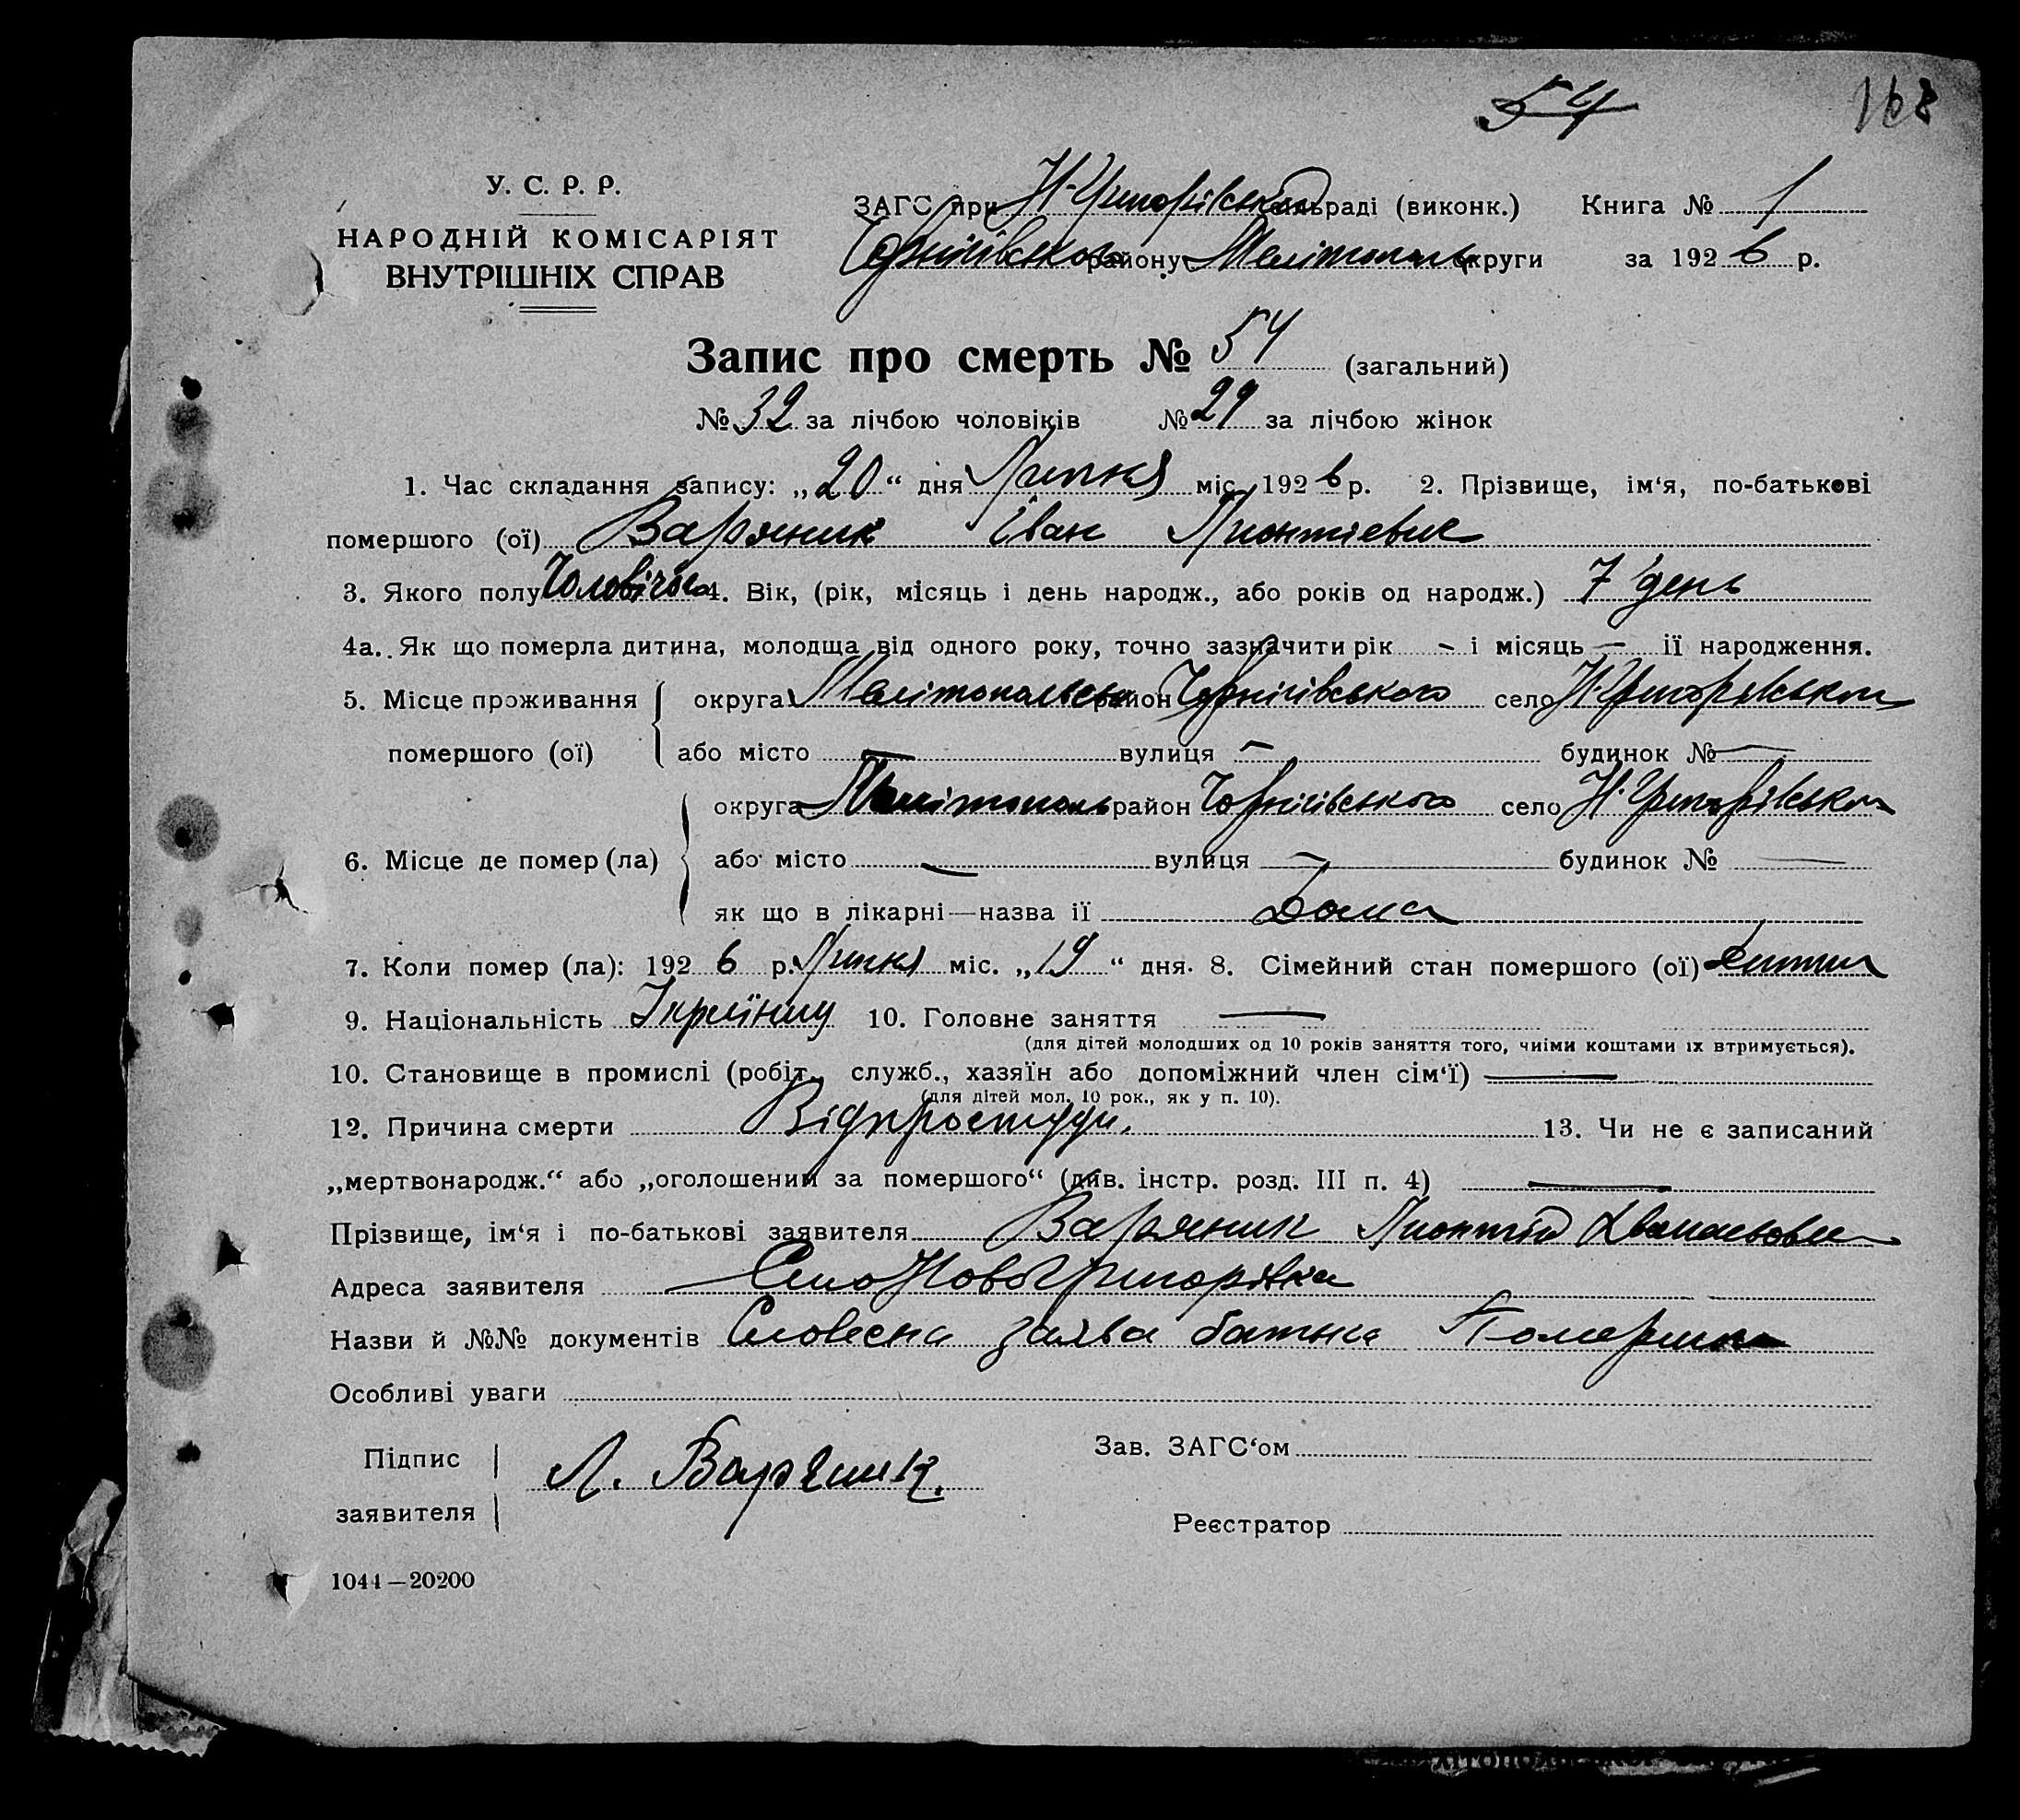 54 168
У. С. Р. Р.
НАРОДНІЙ КОМІСАРІЯТ
ВНУТРІШНІХ СПРАВ
ЗАГС при Н-Григорівській сільраді (виконк.) Книга № 1
Чернігівського району Мелітополь округи за 1926 р.
Запис про смерть № 54 (загальний)
№ 32 за лічбою чоловіків № 29 за лічбою жінок
1. Час складання запису: „20“ дня Липня міс. 1926 р. 2. Прізвище, ім‘я, по-батькові
помершого (ої) Варяник Іван Лионтієвич
3. Якого полу Чоловічого 4. Вік, (рік, місяць і день народж., або років од народж.) 7 день
4а. Як що померла дитина, молодща від одного року, точно зазначити рік – і місяць – ії народження.
5. Місце проживання округа Мелітопольськ район Чернігівського село Н-Григорівськой
помершого (ої) або місто — вулиця — будинок № —
округа Мелітополь район Чернігівського село Н-Григорівськой
6. Місце де помер (ла) або місто — вулиця — будинок № —
як що в лікарні—назва ії Дома
7. Коли помер (ла): 1926 р. Липня міс. „19“ дня. 8. Сімейний стан помершого (ої)
9. Національність 10. Головне заняття —
(для дітей молодших од 10 років заняття того, чиіми коштами іх втримується).
10. Становище в промислі (робіт., служб., хазяїн або допоміжний член сім‘ї) —
(для дітей мол. 10 рок., як у п. 10).
12. Причина смерти Відпростуди. 13. Чи не є записаний
„мертвонародж.“ або „оголошений за помершого“ (див. інстр. розд. III п. 4) —
Прізвище, ім‘я і по-батькові заявителя Варяник Лионтій
Адреса заявителя Село Новогригорівка
Назви й №№ документів Словесна заява батька
Особливі уваги
Підпис
заявителя Л. Варяник.
Зав. ЗАГС‘ом
Реєстратор
1044—20200